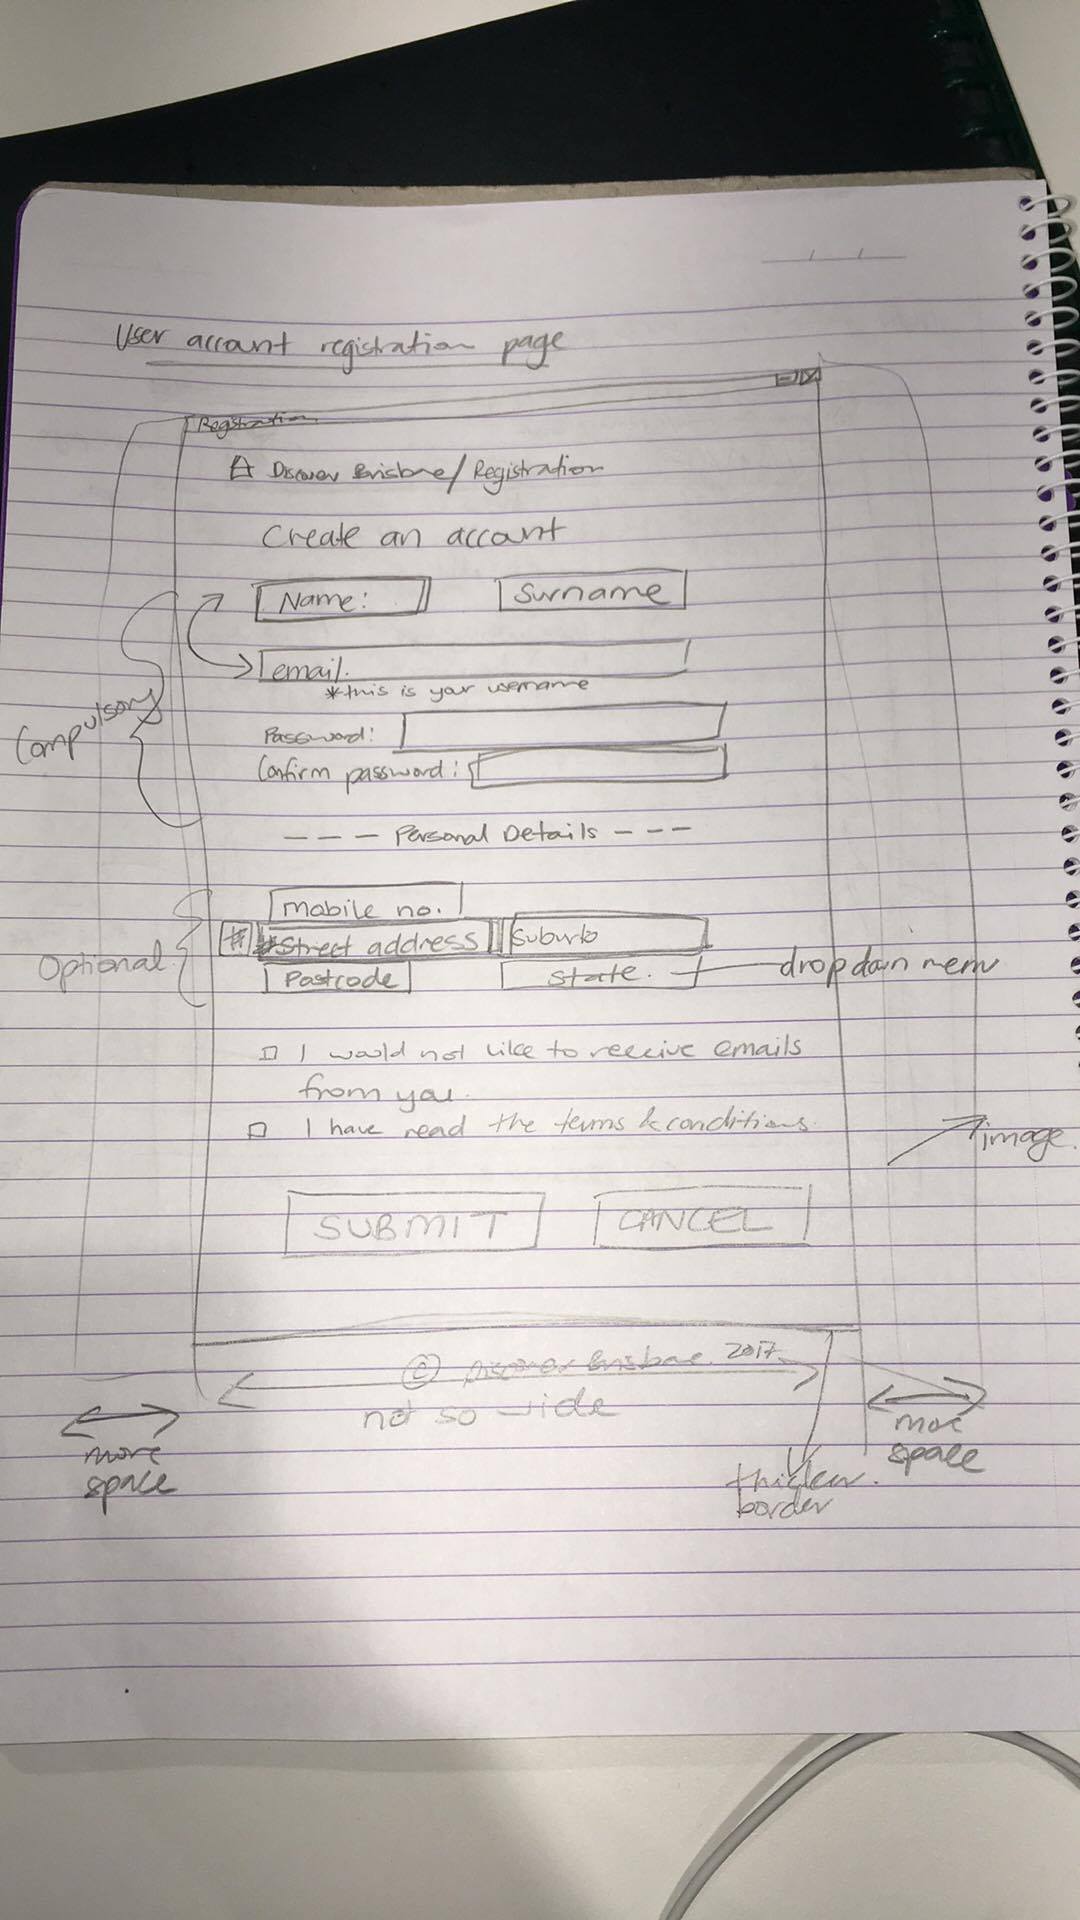 User account registration page
Registration
Discover Brisbane/Registration
Create an account
Name: Surname
email.
*this is your username
Compulsory
Password:
Confirm password:
--- Personal Details ---
mobile no.
# #Street address Suburb
Optional
Postcode State. dropdown menu
I would not like to receive emails
from you.
I have read the terms & conditions.
image.
SUBMIT CANCEL
© Discover Brisbane. 2017
not so wide
more
space
more
space
thicker
border